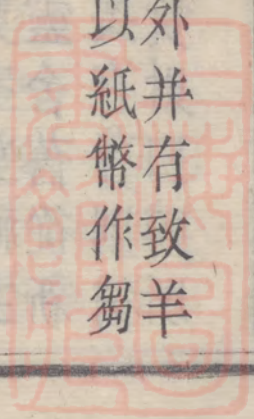 外并有致羊
以紙幣作芻